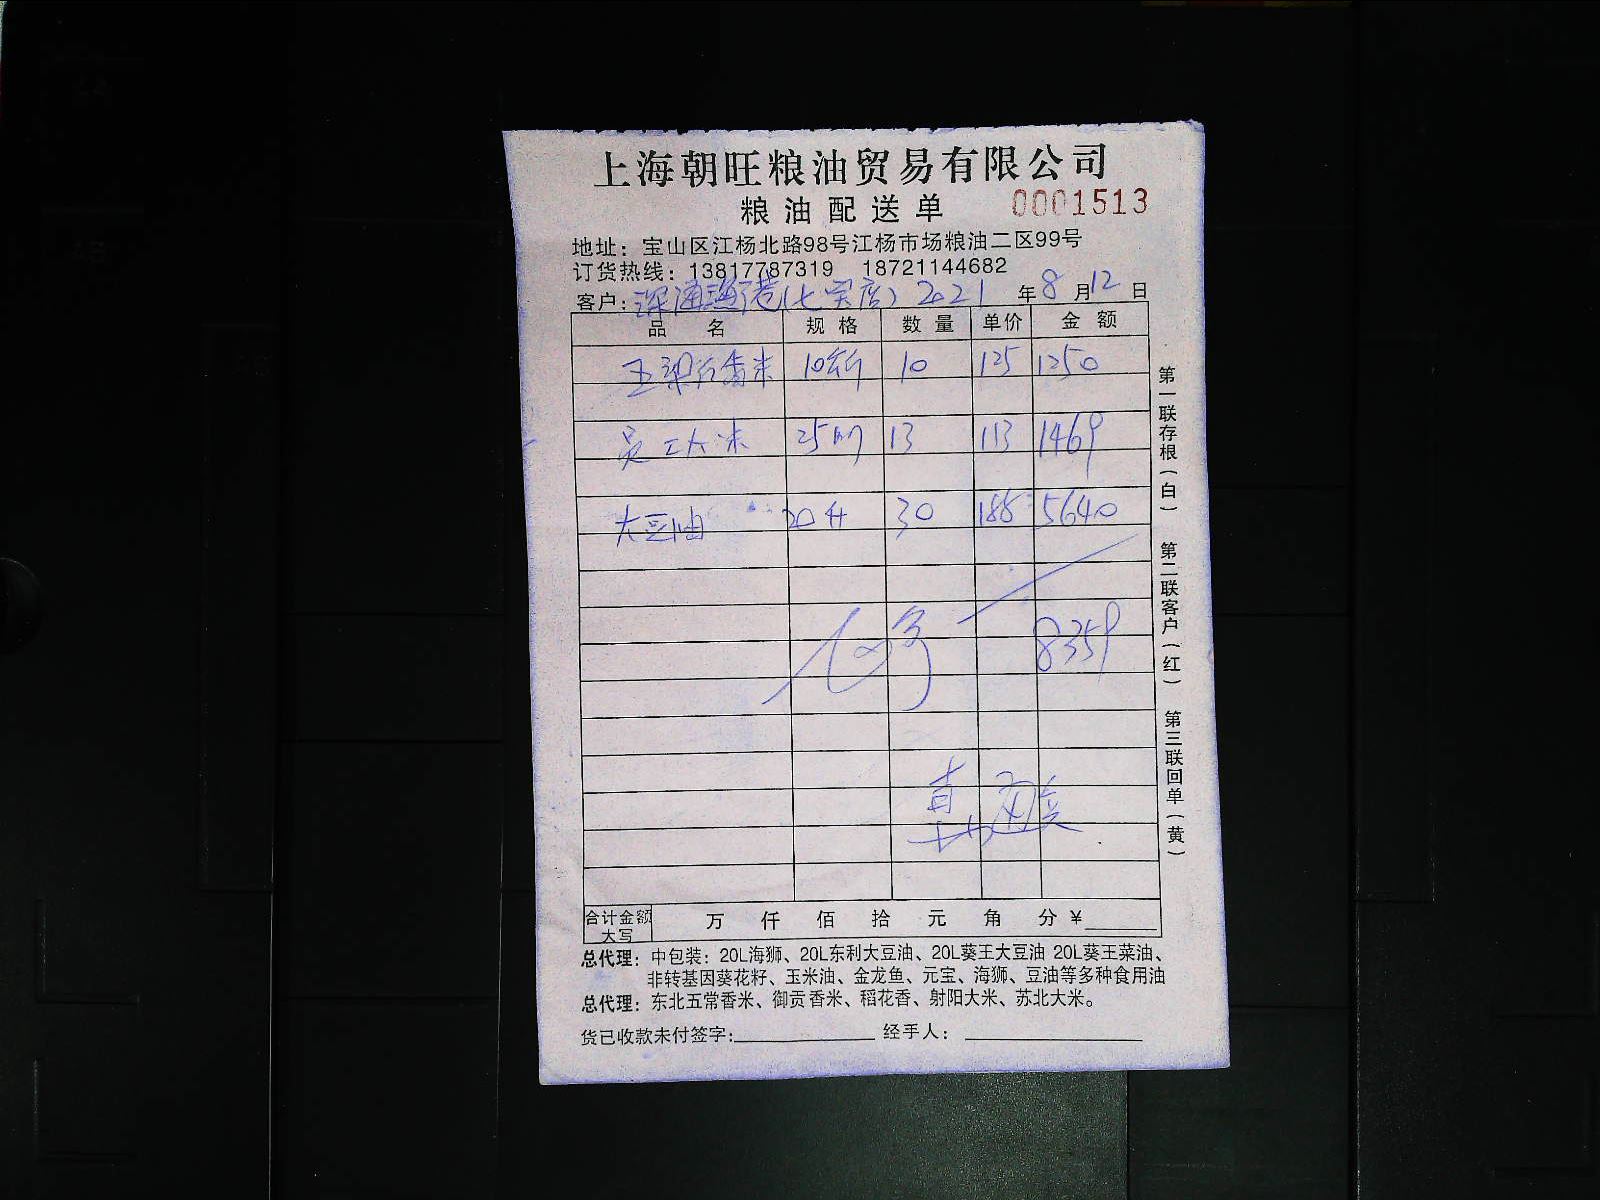 上海朝旺粮油贸易有限公司
粮油配送单 0001513
地址：宝山区江杨北路98号江杨市场粮油二区99号
订货热线：13817787319 18721144682
客户：深通海港(七宝店) 2021 年 8 月 12 日
品 名 规 格 数 量 单价 金 额
香米 10 10 125 1250
大米 25 13 113 1469
大豆油 20升 30 188 5640
8359
合计金额大写 万 仟 佰 拾 元 角 分 ¥
总代理：中包装：20L海狮、20L东利大豆油、20L葵王大豆油 20L葵王菜油、
非转基因葵花籽、玉米油、金龙鱼、元宝、海狮、豆油等多种食用油
总代理：东北五常香米、御贡香米、稻花香、射阳大米、苏北大米。
货已收款未付签字： 经手人：
第一联存根(白) 第二联客户(红) 第三联回单(黄)